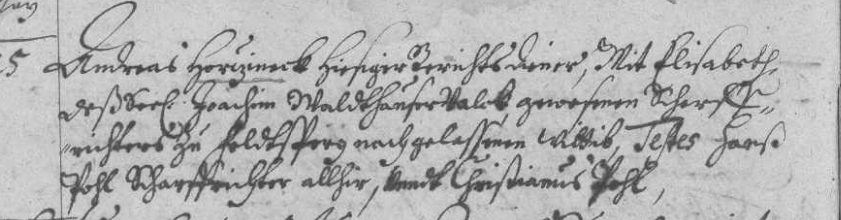 15 Andreas Horzineck hiesiger Gerichtsdiener, Mit Elisabeth,
deß Seel: Joachim Waldhauser Valck, gewesenen Scharff=
=richters zu Feldtsperg nachgelassenen Wittib, Testes Hanß
Pohl Scharffrichter allhir, vndt Christianus Pohl,